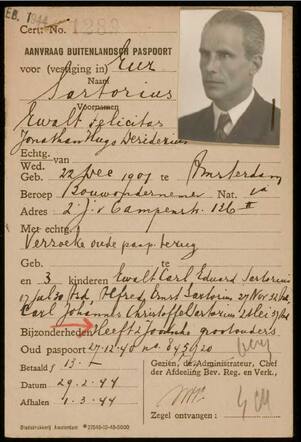 EB. 1944
Certr No. 1289
AANVRAAG BUITENLANDSCH PASPOORT
voor (vestiging in) Eur
Naam
Sartorius
Voornamen
Ewalt Felicitas
Jonathan Hugo Deriderius
Echtg.
Wed.
Geb. 22 Dec 1901 te Amsterdam
Beroep Bouwondernemer Nat.
Adres 2e J. v Campenstr. 126 II
Met echtg.
Verzoeke oude pasp. terug
en 3 kinderen Ewalt Carl Eduard Sartorius
17 Juli 30 Asd, Alfred Ernst Sartorius 27 Nov 32
Carl Johannes Christoffel Sartorius 2
Bijzonderheden Heeft 2 Joodsche grootouders.
Oud paspoort 27-12-40 no. 845920
Betaald f 13.-
Gezien, de Administrateur, Chef
der Afdeeling Bev. Reg. en Verk.,
Datum 29.2.44
Afhalen 1.3.44
Zegel ontvangen:
Stadsdrukkerij Amsterdam